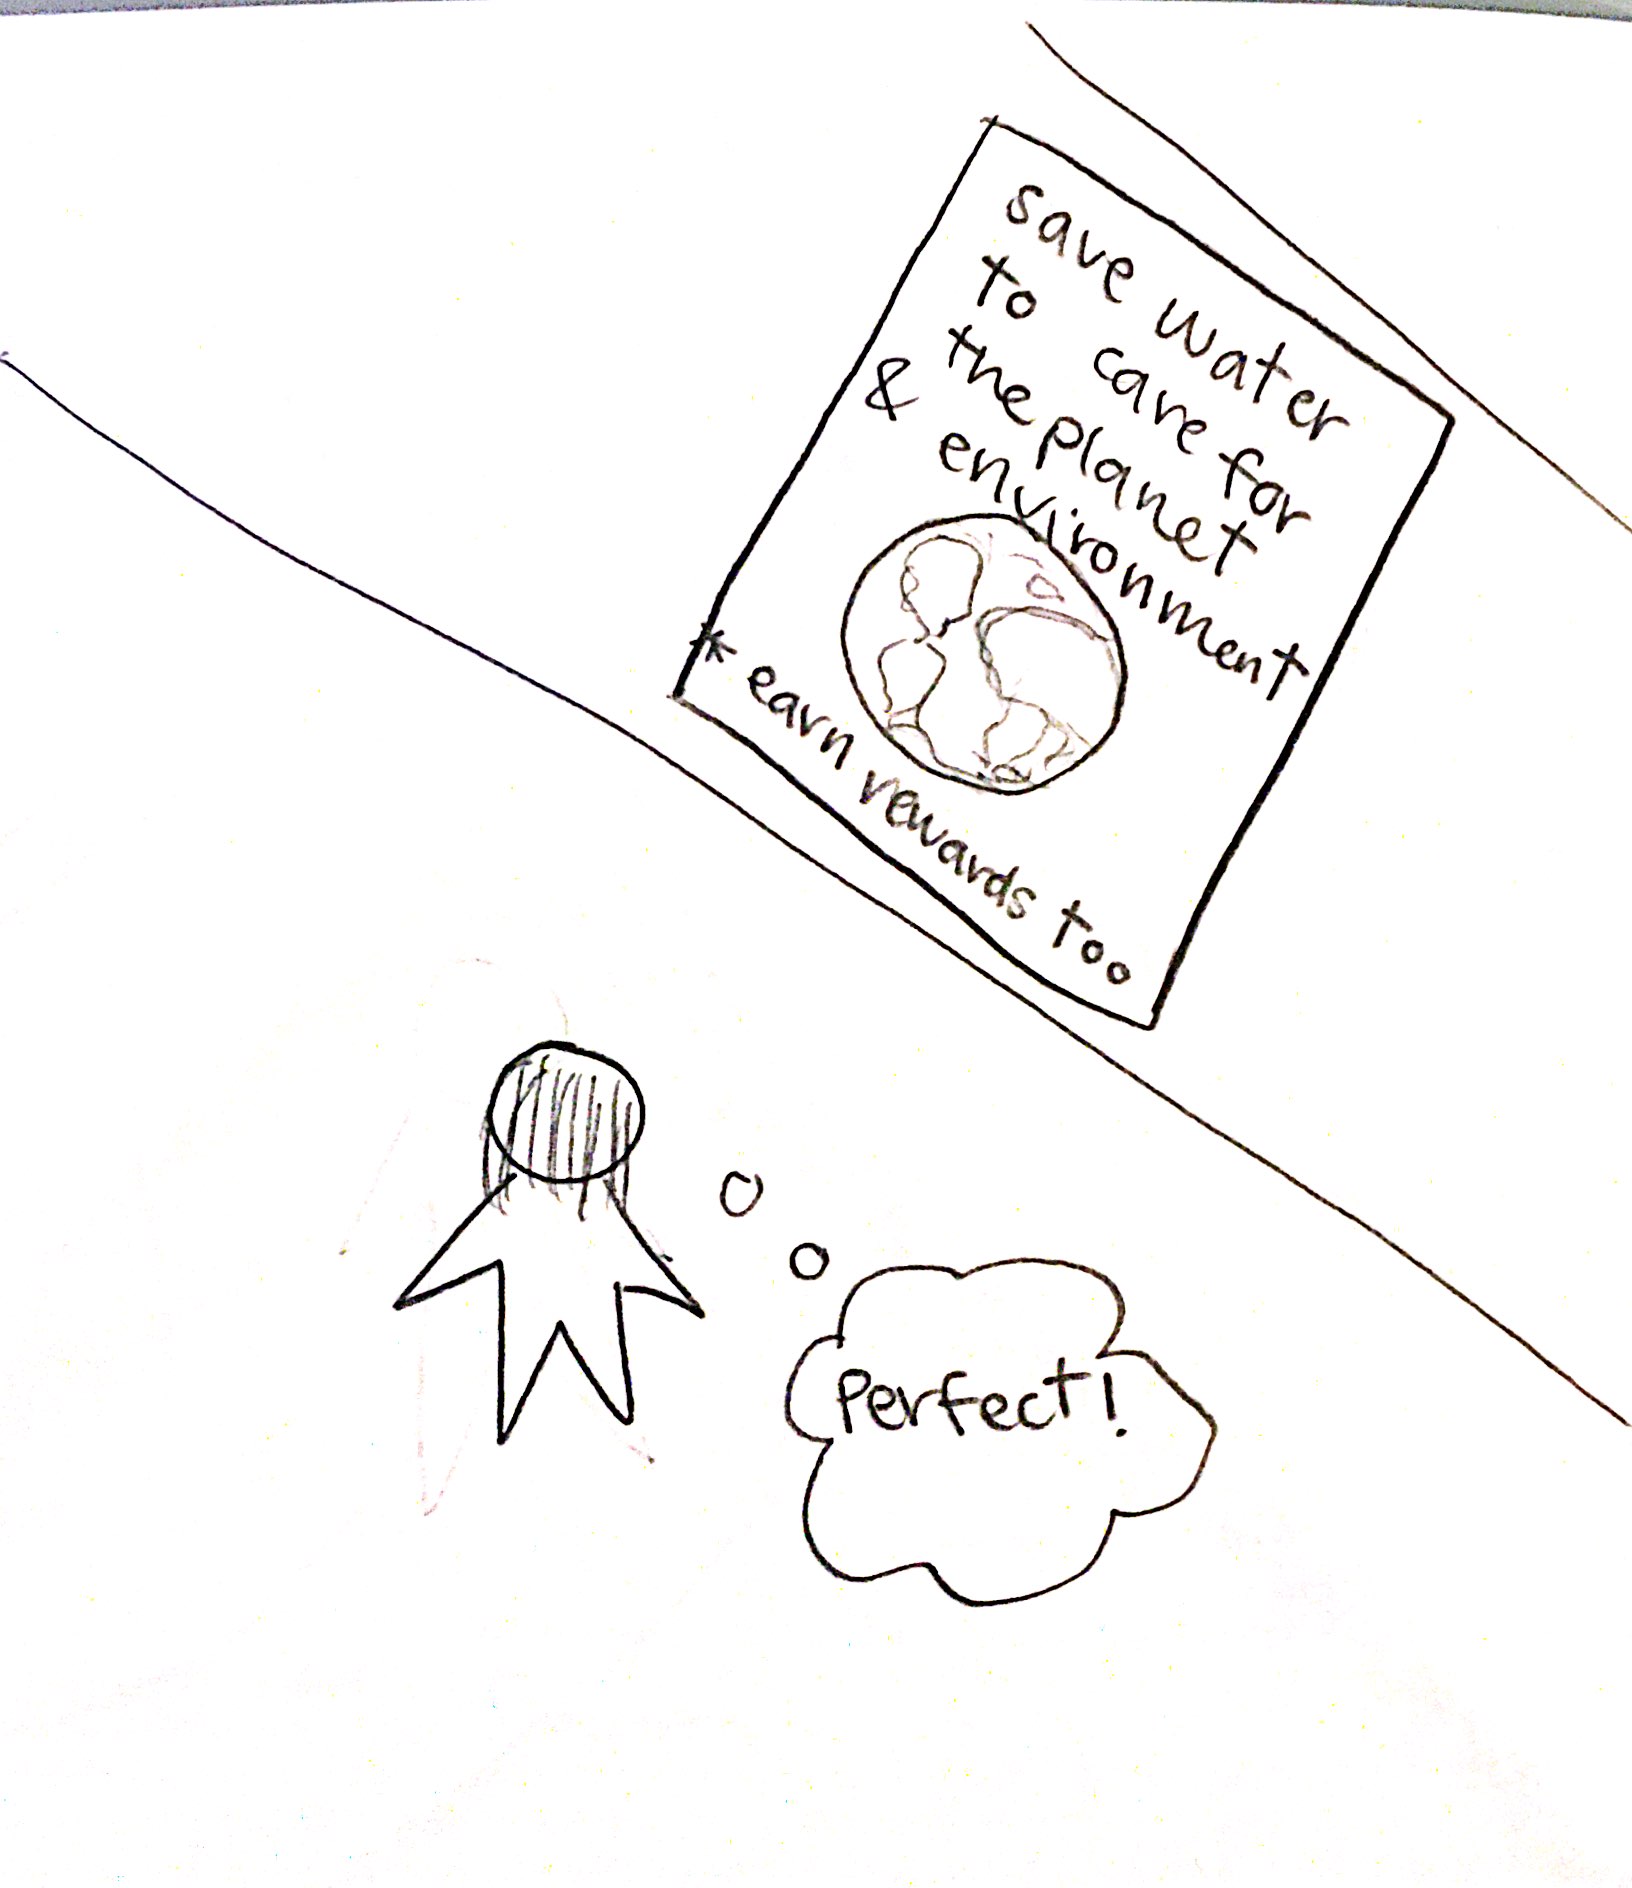 save water
to care for
the planet
& environment
* earn rewards too
Perfect!